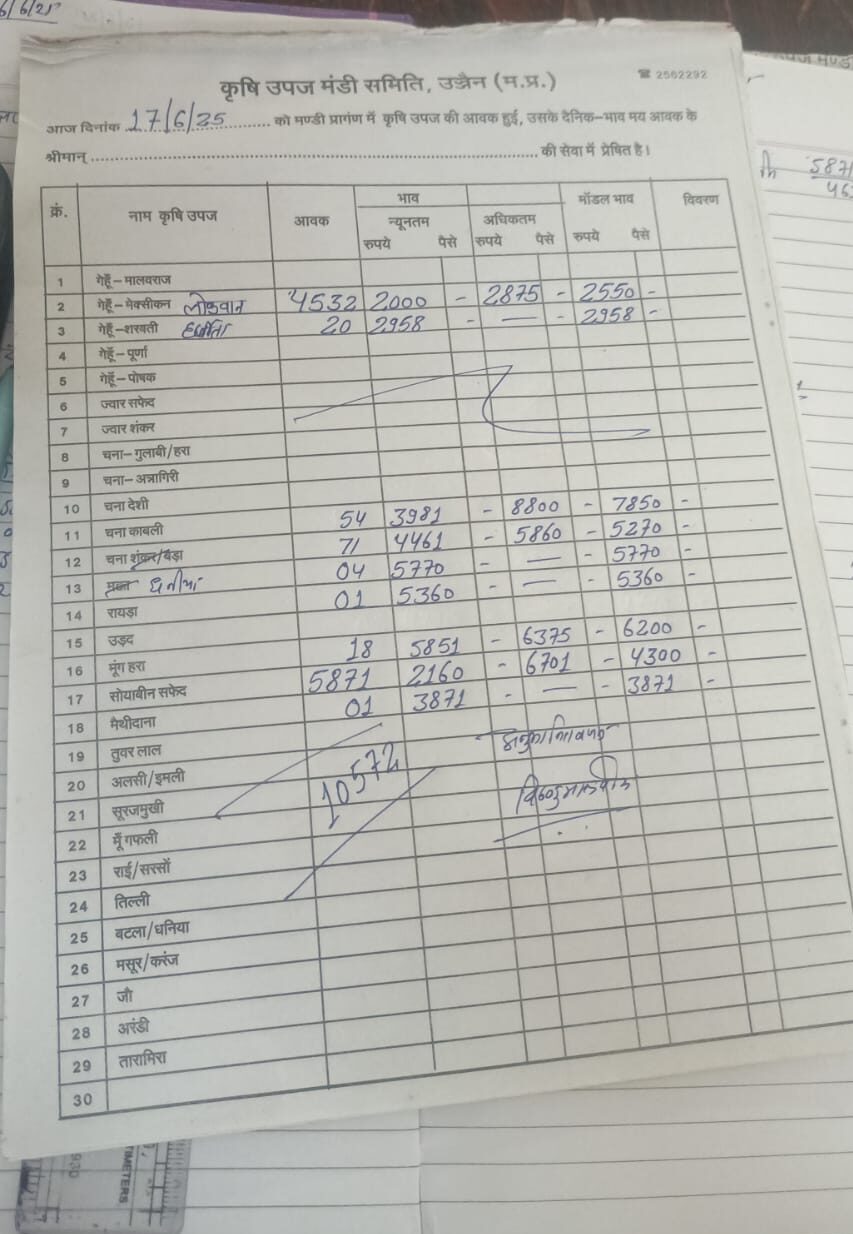 6/6/25
कृषि उपज मंडी समिति, उज्जैन (म.प्र.)
☎ 2562292
आज दिनांक 17/6/25 को मण्डी प्रागंण में कृषि उपज की आवक हुई, उसके दैनिक-भाव मय आवक के
श्रीमान् की सेवा में प्रेषित है।
क्रं. नाम कृषि उपज आवक भाव मॉडल भाव विवरण
न्यूनतम अधिकतम
रुपये पैसे रुपये पैसे रुपये पैसे
1 गेहूँ-मालवराज
2 गेहूँ-मेक्सीकन लोकवान 4532 2000 - 2875 - 2550 -
3 गेहूँ-शरबती 20 2958 - — - 2958 -
4 गेहूँ-पूर्णा
5 गेहूँ-पोषक
6 ज्वार सफेद
7 ज्वार शंकर
8 चना-गुलाबी/हरा
9 चना-अन्नागिरी
10 चना देशी
11 चना काबली 54 3981 - 8800 - 7850 -
12 चना शंकर/बड़ा 71 4461 - 5860 - 5270 -
13 धनीया 04 5770 - — - 5770 -
14 रायड़ा 01 5360 - — - 5360 -
15 उड़द
16 मूंग हरा 18 5851 - 6375 - 6200 -
17 सोयाबीन सफेद 5871 2160 - 6701 - 4300 -
18 मैथीदाना 01 3871 - — - 3871 -
19 तुवर लाल
20 अलसी/इमली
21 सूरजमुखी 10572
22 मूँगफली
23 राई/सरसों
24 तिल्ली
25 बटला/धनिया
26 मसूर/करंज
27 जौ
28 अरंडी
29 तारामिरा
30
5871
930
TIMETERS